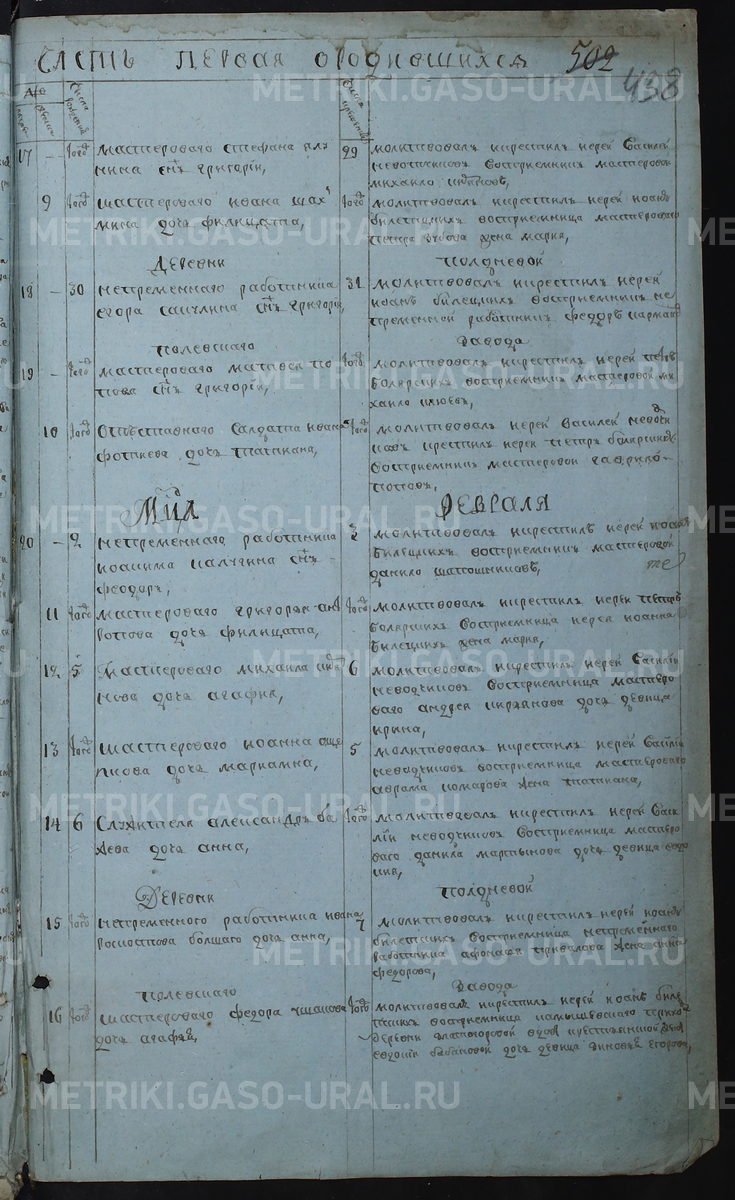 Часть первая ородившихся 502
438
17 - того мастероваго стефана
нина снъ григорій,
29 молитвовалъ икрестилъ іерей Василій
неводчиковъ Восприемникъ мастеровой
михаило
9 того мастероваго ивана шах
мина дочь филицата,
того молитвовалъ икрестилъ іерей иоаннъ
билетцкихъ восприемница мастероваго
петра зубова жена мария,
Деревни Полдневой
18 - 30 непременнаго работника
егора снъ григорій,
31 молитвовалъ икрестилъ іерей
иоаннъ билецкихъ Восприемникъ не
пременной работникъ федоръ
полевскаго Завода
19 - того мастероваго матвея по
пова снъ григорій,
того молитвовалъ икрестилъ іерей петръ
Боярскихъ восприемникъ мастеровой ми
хаило
10 того Отставнаго Салдата ивана
фотиева дочь татиана,
того молитвовалъ іерей Василей неводчи
ковъ крестилъ іерей петръ боярскихъ
Восприемникъ мастеровой гаврило
попов,
Мца Февраля
20 - 2 непременнаго работника
иоакима калугина снъ
феодоръ,
2 молитвовалъ икрестилъ іерей иоаннъ
Билецкихъ восприемникъ мастеровой
данило шапошниковъ,
11 того мастероваго григорья
дочь филицата,
того молитвовалъ икрестилъ іерей петръ
Боярскихъ Восприемница іерея иоанна
Билецкихъ жена мария,
12 5 Мастероваго михаила
нова дочь агафия,
6 молитвовалъ икрестилъ іерей Василій
неводчиковъ Восприемница мастеро
ваго андрея дочь девица
ирина,
13 того мастероваго иоанна още
пкова дочь мариамна,
5 молитвовалъ икрестилъ іерей Василій
неводчиковъ восприемница мастероваго
аврама комарова жена татиана,
14 6 Служителя александра ба
жева дочь анна,
того молитвовалъ икрестилъ іерей Васи
лій неводчиковъ Восприемница мастеро
ваго данила мартынова дочь девица евдо
кия,
Деревни Полдневой
15 того непременного работника ивана
болшаго дочь анна,
7 молитвовалъ икрестилъ іерей иоаннъ
билетцкихъ Восприемница непременнаго
работника афонасья привалова жена анна
федорова,
полевскаго Завода
16 того мастероваго федора ушакова
дочь агафия,
того молитвовалъ икрестилъ іерей иоаннъ биле
тцкихъ восприемница камышевскаго
деревни вдовы крестьянской жены
евдокии бабановой дочь девица зиновья егорова,
METRIKI.GASO-URAL.RU